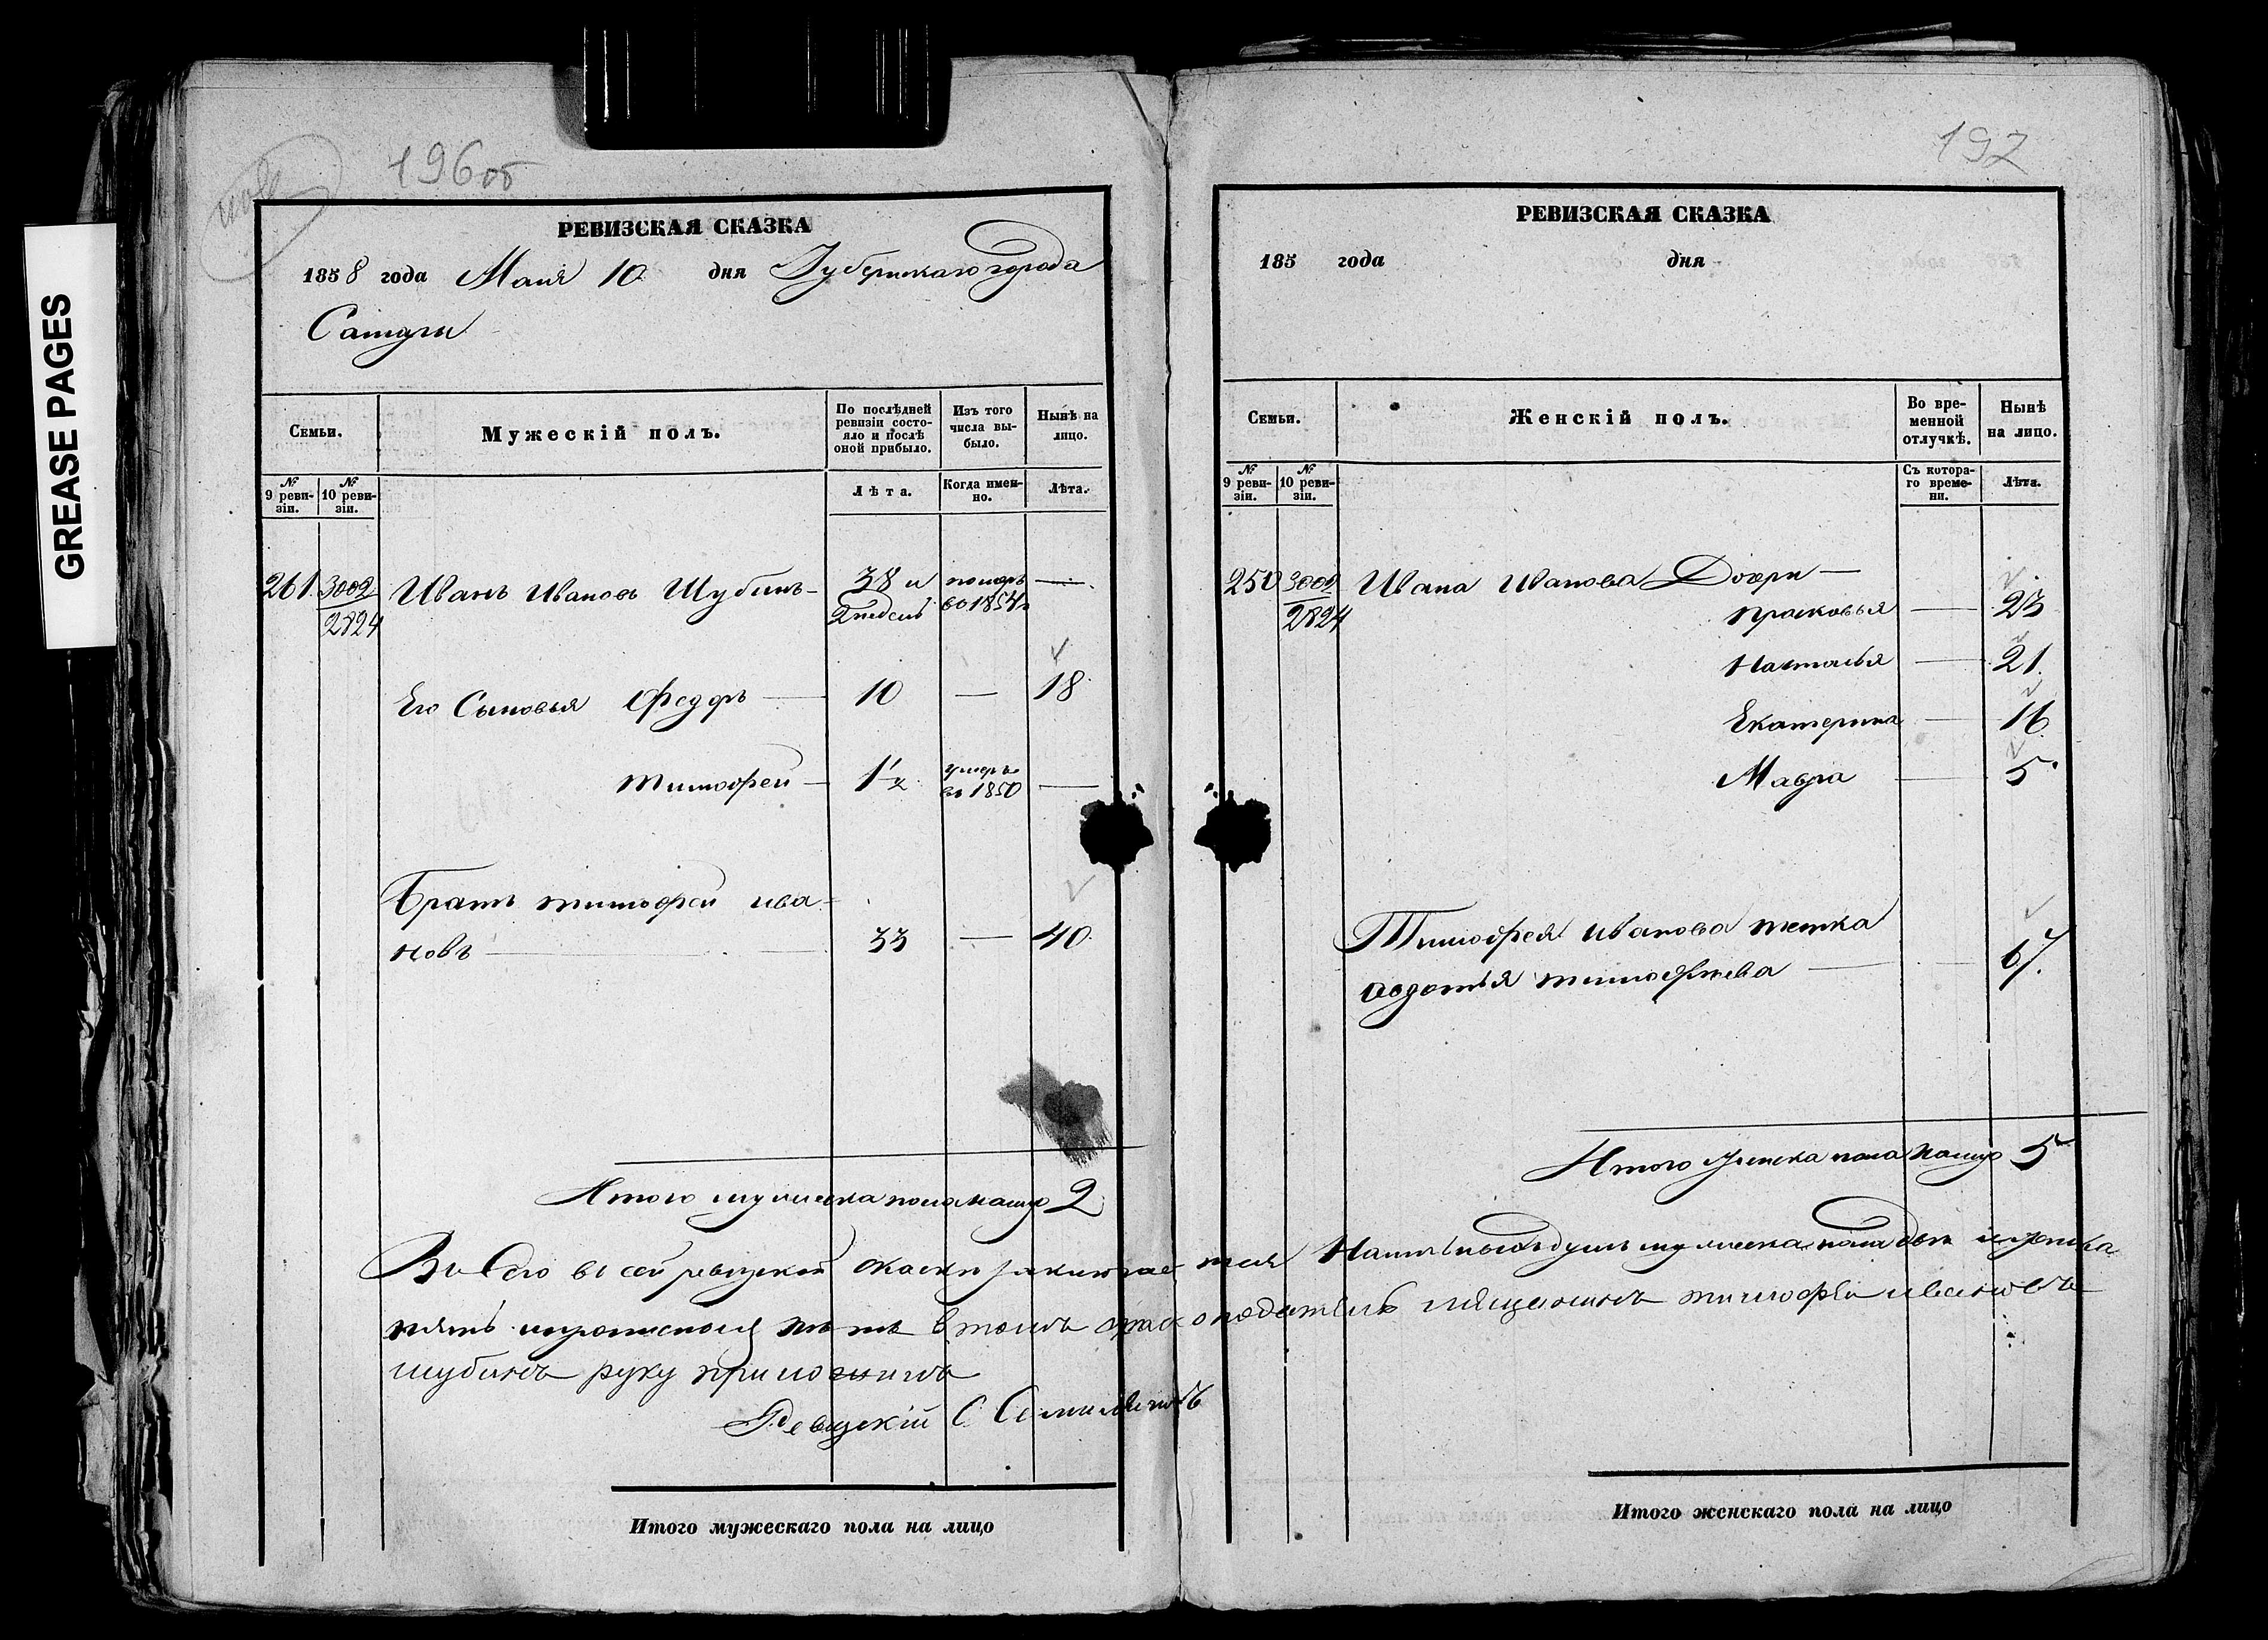 GREASE PAGES
196 об
РЕВИЗСКАЯ СКАЗКА
1858 года Маия 10 дня Губернскаго города
Самары
Семьи.
Мужескій полъ.
По послѣдней
ревизіи состо-
яло и послѣ
оной прибыло.
Изъ того
числа вы-
было.
Нынѣ на
лицо.
№
9 реви-
зіи.
№
10 реви-
зіи.
Лѣта.
Когда имен-
но.
Лѣта.
261. 3002 Иванъ Ивановъ Шубинъ 38 и
2824 2 недель во 1854
Его Сыновья Федоръ — 10 — 18
Тимофей — 1½ умеръ —
въ 1850
Братъ тимофей ива-
новъ — 33 — 40.
Итого мужеска пола налицо 2
197
РЕВИЗСКАЯ СКАЗКА
185 года дня
Семьи.
Женскій полъ.
Во вре-
менной
отлучкѣ.
Нынѣ
на лицо.
№
9 реви-
зіи.
№
10 реви-
зіи.
Съ котора-
го време-
ни.
Лѣта.
250 3002 Ивана Иванова Дочри —
2824 прасковья — 23
Наталья — 21.
Екатерина — 16
Мавра — 5
Тимофея Иванова тетка
авдотья тимофѣева — 67.
Итого женска пола налицо 5
Во Сего въ сей ревизской скаски заключается Налицо душъ мужеска пола две и женска
пять в томъ сказкоподатель мѣщанинъ тимофѣй ивановъ
шубинъ руку приложилъ
Итого мужескаго пола на лицо
Итого женскаго пола на лицо